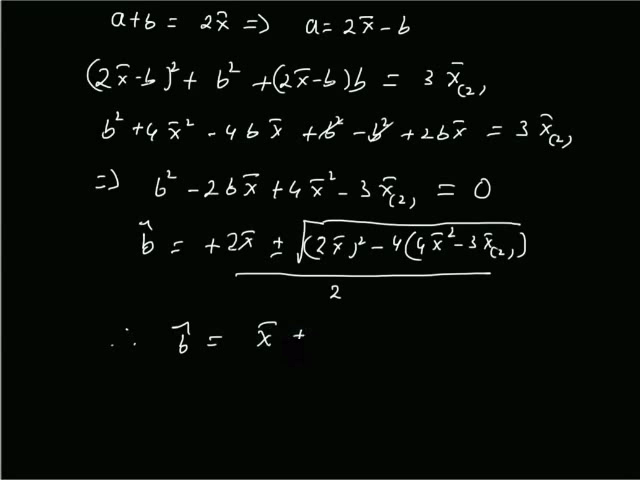 a+b = 2x̄ => a = 2x̄ - b
(2x̄-b)² + b² + (2x̄-b)b = 3 x̄₍₂₎
b² + 4x̄² - 4bx̄ + b² - b² + 2bx̄ = 3x̄₍₂₎
=> b² - 2bx̄ + 4x̄² - 3x̄₍₂₎ = 0
b̂ = +2x̄ ± √((2x̄)² - 4(4x̄² - 3x̄₍₂₎))
2
∴ b̂ = x̄ +